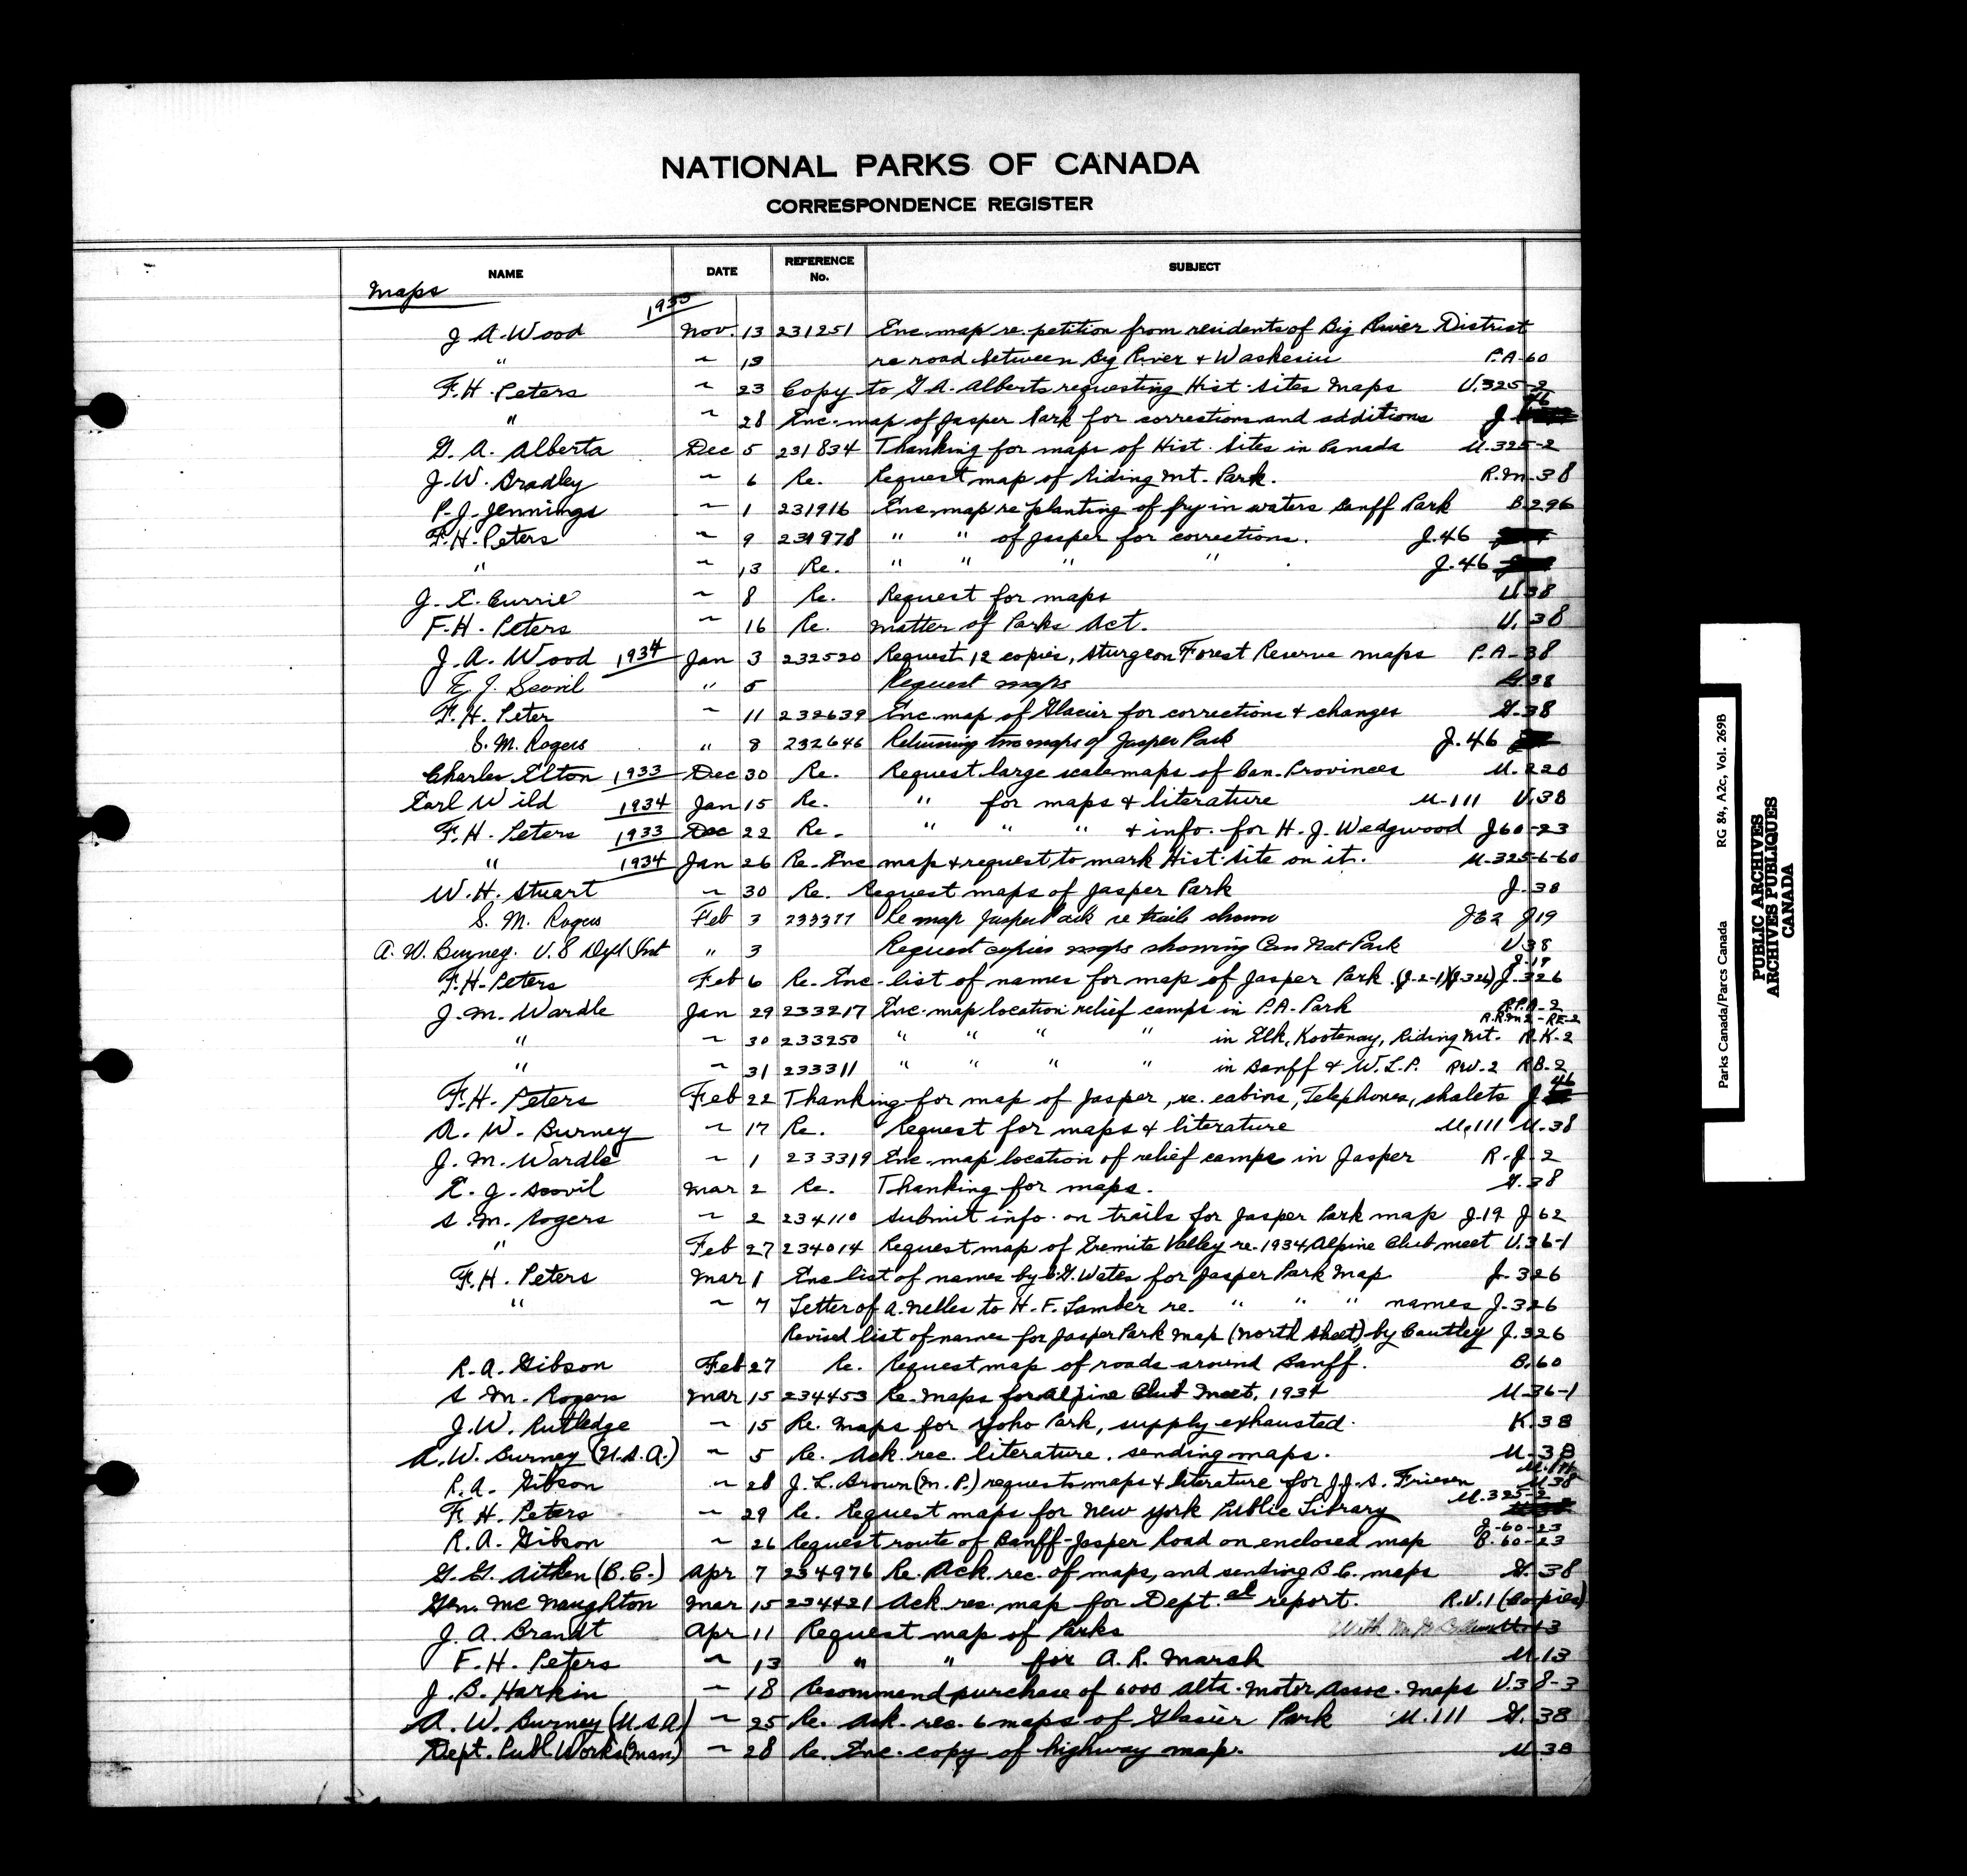 NATIONAL PARKS OF CANADA
CORRESPONDENCE REGISTER
NAME DATE REFERENCE No. SUBJECT
Maps
J. A. Wood Nov. 13 231251 Enc. map re. petition from residents of Big River District
" ~ 13 re road between Big River & Waskesiu P.A-60
F.H. Peters ~ 23 Copy to G A. Alberts requesting Hist. Sites Maps U.325-2
" ~ 28 Enc. map of Jasper Park for corrections and additions J. 46
G. A. Alberta Dec 5 231834 Thanking for maps of Hist. Sites in Canada U.325-2
J.W. Bradley ~ 6 Re. Request map of Riding Mt. Park. R.M-38
P.J. Jennings ~ 1 231916 Enc. map re planting of fry in waters Banff Park B296
F.H. Peters ~ 9 231978 " " of Jasper for corrections. J.46
" ~ 13 Re. " " " " . J.46
J. E. Currie ~ 8 Re. Request for maps U.38
F.H. Peters ~ 16 Re. Matter of Parks Act. U.38
J. A. Wood 1934 Jan 3 232520 Request 12 copies, Sturgeon Forest Reserve maps P.A-38
E J. Scovil " 5 Request maps G.38
F.H. Peter ~ 11 232639 Enc. map of Glacier for corrections & changes G-38
S. M. Rogers " 8 232646 Returning two maps of Jasper Park J.46
Charles Elton 1933 Dec 30 Re. Request large scale maps of Can. Provinces U.220
Earl Wild 1934 Jan 15 Re. " for maps & literature U-111 U.38
F.H. Peters 1933 Dec 22 Re. " " " & info. for H. J. Wedgwood J60-23
" 1934 Jan 26 Re. Enc map & request to mark Hist. Site on it. U-325-6-60
W.H. Stuart ~ 30 Re. Request maps of Jasper Park J-38
S. M. Rogers Feb 3 233377 Re map Jasper Park re trails shown J62 J19
A. W. Burney. U.S Dept Int " 3 Request copies maps showing Can Nat Park U38
J.19
F.H. Peters Feb 6 Re. Enc. list of names for map of Jasper Park. (J-2-1)(J-326) J.326
J.M. Wardle Jan 29 233217 Enc. map location relief camps in P.A. Park R.P.A-2
R.R.M2-RE-2
" ~ 30 233250 " " " " in Elk, Kootenay, Riding Mt. R.K-2
" ~ 31 233311 " " " " in Banff & W.L.P. RW.2 RB.2
F.H. Peters Feb 22 Thanking for map of Jasper, re. cabins, Telephones, chalets J. 46
A. W. Burney ~ 17 Re. Request for maps & literature U.111 U.38
J. M. Wardle ~ 1 233319 Enc. map location of relief camps in Jasper R-J-2
E. J. Scovil Mar 2 Re. Thanking for maps. G.38
S. M. Rogers ~ 2 234110 Submit info. on trails for Jasper Park map J.19 J62
" Feb 27 234014 Request map of Eremite Valley re. 1934 Alpine Club meet U.36-1
F.H. Peters Mar 1 Enc list of names by C.G. Wates for Jasper Park Map J-326
" ~ 7 Letter of A. Nelles to H. F. Lamber re. " " " names J-326
Revised list of names for Jasper Park Map (North Sheet) by Cautley J.326
R.A. Gibson Feb 27 Re. Request map of roads around Banff. B.60
S. M. Rogers Mar 15 234453 Re. Maps for Alpine Club Meet, 1934 U-36-1
J.W. Rutledge ~ 15 Re. Maps for Yoho Park, supply exhausted. K.38
A.W. Burney (U.S.A.) ~ 5 Re. Ack. rec. literature. sending maps. U-38
R.A. Gibson ~ 28 J. L. Brown (M.P.) requests maps & literature for J.J.S. Friesen U.38
F. H. Peters ~ 29 Re. Request maps for New York Public Library U.325-2
R.A. Gibson ~ 26 Request route of Banff-Jasper Road on enclosed map J-60-23
B.60-23
G. G. Aitken (B.C.) Apr 7 234976 Re. Ack. rec. of maps, and sending B.C. maps G.38
Gen. McNaughton Mar 15 234421 Ack rec. map for Dept.al report. R.V.1 (Copies)
J. A. Brandt Apr 11 Request map of Parks With
F.H. Peters ~ 13 " " for A. R. Marsh U.13
J. B. Harkin ~ 18 Recommend purchase of 6000 Alta. Motor Assoc. Maps U.38-3
A. W. Burney (U.S.A.) ~ 25 Re. Ack. rec. 6 maps of Glacier Park U.111 G.38
Dept. Publ. Works (Man.) ~ 28 Re. Enc. copy of highway map. U.38
Parks Canada/Parcs Canada RG 84, A2c, Vol. 269B
PUBLIC ARCHIVES
ARCHIVES PUBLIQUES
CANADA